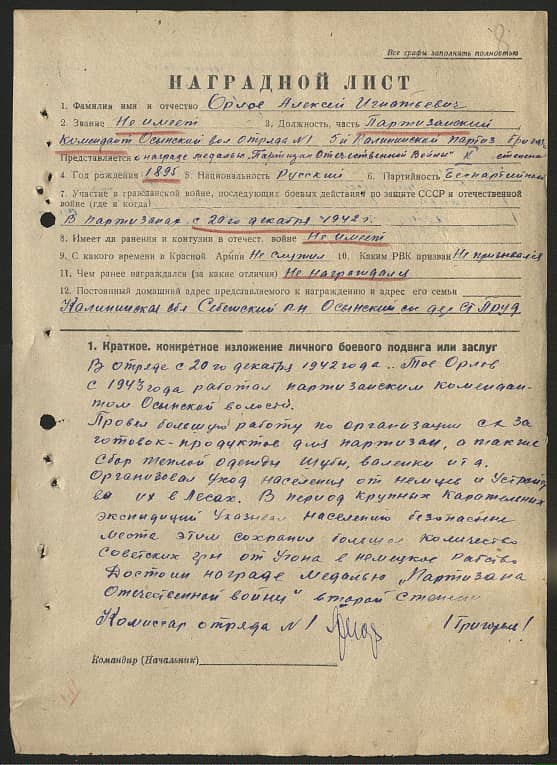 Все графы заполнять полностью
НАГРАДНОЙ ЛИСТ
1. Фамилия имя и отчество Орлов Алексей Игнатьевич
2. Звание Не имеет 3. Должность, часть Партизанский
Комендант Осынский вол отряда №1 5й Калининской партиз
Представляется о награде медалью "Партизан Отечественной Войны" степени
4. Год рождения 1895 5. Национальность Русский 6. Партийность Беспартийный
7. Участие в гражданской войне, последующих боевых действиях по защите СССР и отечественной
войне (где и когда)
В партизанах с 20го декабря 1942 г.
8. Имеет ли ранения и контузии в отечест. войне Не имеет
9. С какого времени в Красной Армии Не служил 10. Каким РВК призван Не призывался
11. Чем ранее награждался (за какие отличия) Не награждался
12. Постоянный домашний адрес представляемого к награждению и адрес его семьи
Калининская обл Себежский р-н Осынский с/с дер Ст Пруд
1. Краткое. конкретное изложение личного боевого подвига или заслуг
В отряде с 20го декабря 1942 года.. Тов Орлов
с 1943 года работал партизанским комендан-
том Осынской волости.
Провел большую работу по организации за
готовок-продуктов для партизан, а также
сбор теплой одежды шубы, валенки и т д.
Организовал уход населения от немцев и устройс
во их в лесах. В период крупных карательных
экспедиций указывал населению безопасные
места этим сохранил большое количество
советских грн от угона в немецкое рабство
Достоин награде медалью „Партизана
Отечественной войны" второй степени
Комиссар отряда №1 /Григорьев/
Командир (Начальник)